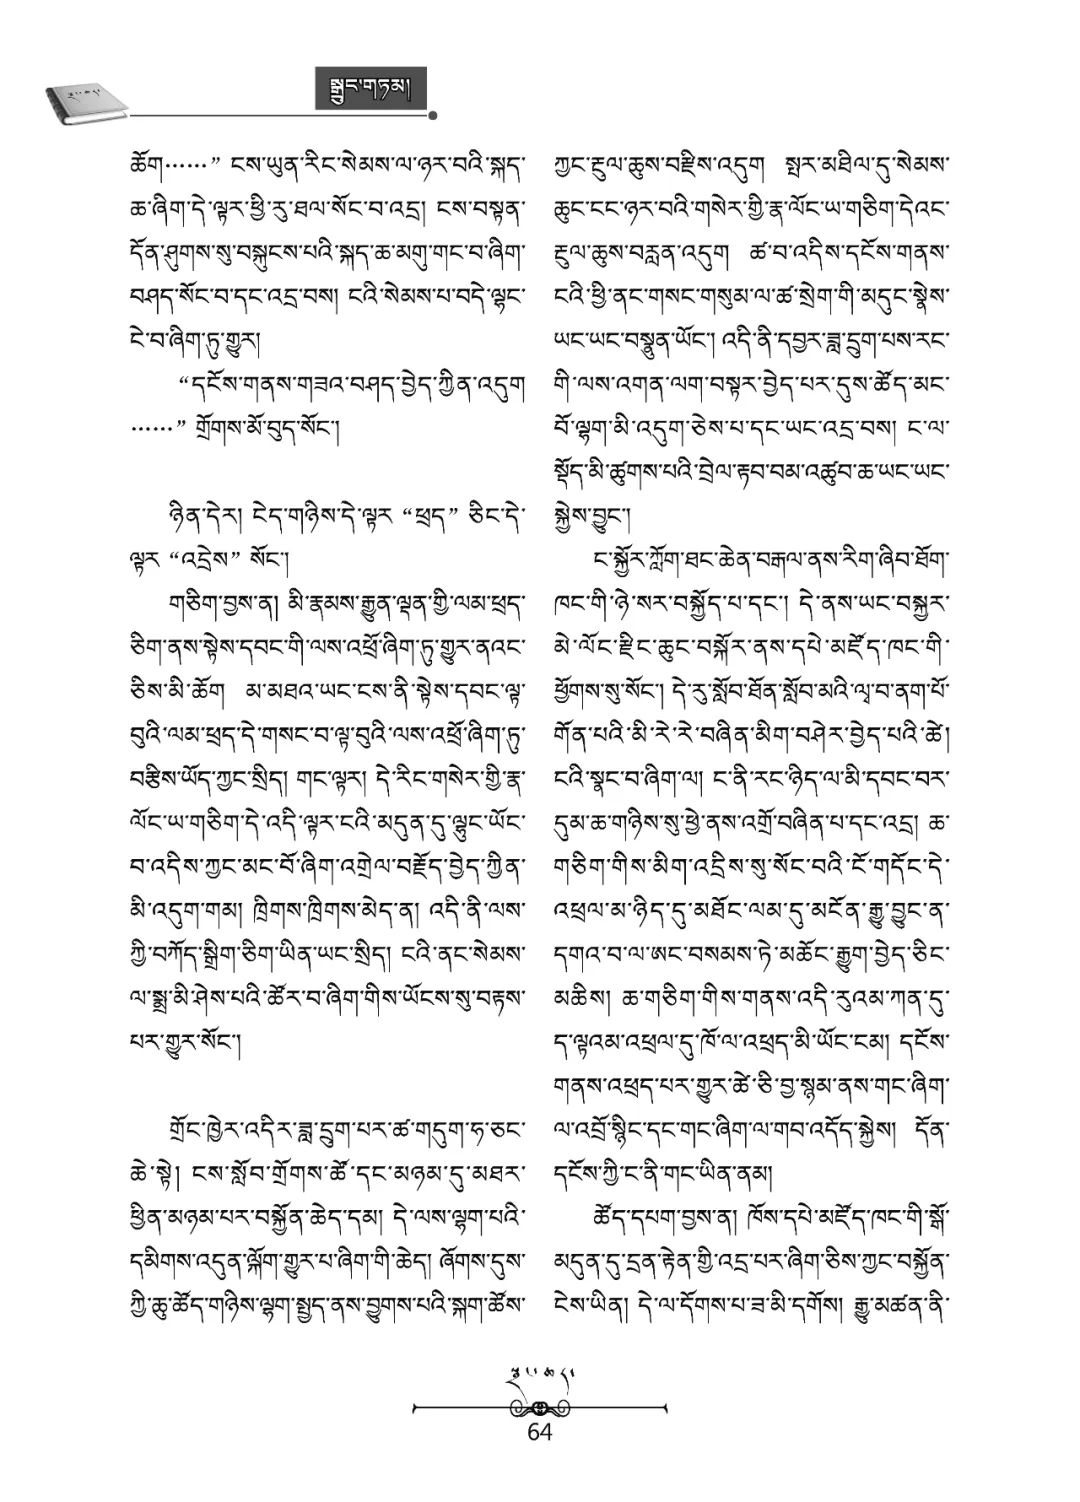 སྒྲུང་གཏམ།
ཆོག……” ངས་ཡུན་རིང་སེམས་ལ་ཉར་བའི་སྐད་
ཆ་ཞིག་དེ་ལྟར་ཕྱི་རུ་ཐལ་སོང་བ་འདྲ། ངས་བསྟན་
དོན་ཤུགས་སུ་བསྐུངས་པའི་སྐད་ཆ་མགུ་གང་བ་ཞིག་
བཤད་སོང་བ་དང་འདྲ་བས། ངའི་སེམས་པ་བདེ་ལྷང་
ངེ་བ་ཞིག་ཏུ་གྱུར།
“དངོས་གནས་གཟའ་བཤད་བྱེད་ཀྱིན་འདུག
……” གྲོགས་མོ་བུད་སོང་།
ཉིན་དེར། ངེད་གཉིས་དེ་ལྟར “ཕྲད” ཅིང་དེ་
ལྟར “འདྲེས” སོང་།
གཅིག་བྱས་ན། མི་རྣམས་རྒྱུན་ལྡན་གྱི་ལམ་ཕྲད་
ཅིག་ནས་སྟེས་དབང་གི་ལས་འཕྲོ་ཞིག་ཏུ་གྱུར་ནའང་
ཅིས་མི་ཆོག མ་མཐའ་ཡང་ངས་ནི་སྟེས་དབང་ལྟ་
བུའི་ལམ་ཕྲད་དེ་གསང་བ་ལྟ་བུའི་ལས་འཕྲོ་ཞིག་ཏུ་
བརྩིས་ཡོད་ཀྱང་སྲིད། གང་ལྟར། དེ་རིང་གསེར་གྱི་རྣ་
ལོང་ཡ་གཅིག་དེ་འདི་ལྟར་ངའི་མདུན་དུ་ལྷུང་ཡོང་
བ་འདིས་ཀྱང་མང་པོ་ཞིག་འགྲེལ་བརྗོད་བྱེད་ཀྱིན་
མི་འདུག་གམ། ཁྲིགས་ཁྲིགས་མེད་ན། འདི་ནི་ལས་
ཀྱི་བཀོད་སྒྲིག་ཅིག་ཡིན་ཡང་སྲིད། ངའི་ནང་སེམས་
ལ་སྨྲ་མི་ཤེས་པའི་ཚོར་བ་ཞིག་གིས་ཡོངས་སུ་བརྟས་
པར་གྱུར་སོང་།
གྲོང་ཁྱེར་འདིར་ཟླ་དྲུག་པར་ཚ་གདུག་ཧ་ཅང་
ཆེ་སྟེ། ངས་སློབ་གྲོགས་ཚོ་དང་མཉམ་དུ་མཐར་
ཕྱིན་མཉམ་པར་བསྐྱོན་ཆེད་དམ། དེ་ལས་ལྷག་པའི་
དམིགས་འདུན་ལྐོག་གྱུར་པ་ཞིག་གི་ཆེད། ཞོགས་དུས་
ཀྱི་ཆུ་ཚོད་གཉིས་ལྷག་སྤྱད་ནས་བྱུགས་པའི་སྐག་ཚོས་
ཀྱང་རྡུལ་ཆུས་བརྫིས་འདུག སྤར་མཐིལ་དུ་སེམས་
ཆུང་ངང་ཉར་བའི་གསེར་གྱི་རྣ་ལོང་ཡ་གཅིག་དེའང་
རྡུལ་ཆུས་བརླན་འདུག ཚ་བ་འདིས་དངོས་གནས་
ངའི་ཕྱི་ནང་གསང་གསུམ་ལ་ཚ་སྲེག་གི་མདུང་སྣེས་
ཡང་ཡང་བསྣུན་ཡོང་། འདི་ནི་དབྱར་ཟླ་དྲུག་པས་རང་
གི་ལས་འགན་ལག་བསྟར་བྱེད་པར་དུས་ཚོད་མང་
པོ་ལྷག་མི་འདུག་ཅེས་པ་དང་ཡང་འདྲ་བས། ང་ལ་
སྡོད་མི་ཚུགས་པའི་བྲེལ་རྟབ་བམ་འཚུབ་ཆ་ཡང་ཡང་
སྐྱེས་བྱུང་།
ང་སྐྱོར་ཀློག་ཐང་ཆེན་བརྒལ་ནས་རིག་ཞིབ་ཐོག་
ཁང་གི་ཉེ་སར་བསྐྱོད་པ་དང་། དེ་ནས་ཡང་བསྐྱར་
མེ་ལོང་རྫིང་ཆུང་བསྐོར་ནས་དཔེ་མཛོད་ཁང་གི་
ཕྱོགས་སུ་སོང་། དེ་རུ་སློབ་ཐོན་སློབ་མའི་ལྭ་བ་ནག་པོ་
གོན་པའི་མི་རེ་རེ་བཞིན་མིག་བཤེར་བྱེད་པའི་ཚེ།
ངའི་སྣང་བ་ཞིག་ལ། ང་ནི་རང་ཉིད་ལ་མི་དབང་བར་
དུམ་ཆ་གཉིས་སུ་ཕྱེ་ནས་འགྲོ་བཞིན་པ་དང་འདྲ། ཆ་
གཅིག་གིས་མིག་འདྲིས་སུ་སོང་བའི་ངོ་གདོང་དེ་
འཕྲལ་མ་ཉིད་དུ་མཐོང་ལམ་དུ་མངོན་རྒྱུ་བྱུང་ན་
དགའ་བ་ལ་ཨང་བསམས་ཏེ་མཆོང་རྒྱུག་བྱེད་ཅིང་
མཆིས། ཆ་གཅིག་གིས་གནས་འདི་རུའམ་ཀན་དུ་
ད་ལྟའམ་འཕྲལ་དུ་ཁོ་ལ་འཕྲད་མི་ཡོང་ངམ། དངོས་
གནས་འཕྲད་པར་གྱུར་ཚེ་ཅི་བྱ་སྙམ་ནས་གང་ཞིག་
ལ་འབྲོ་སྙིང་དང་གང་ཞིག་ལ་གབ་འདོད་སྐྱེས། དོན་
དངོས་ཀྱི་ང་ནི་གང་ཡིན་ནམ།
ཚོད་དཔག་བྱས་ན། ཁོས་དཔེ་མཛོད་ཁང་གི་སྒོ་
མདུན་དུ་དྲན་རྟེན་གྱི་འདྲ་པར་ཞིག་ཅིས་ཀྱང་བསྐྱོན་
ངེས་ཡིན། དེ་ལ་དོགས་པ་ཟ་མི་དགོས། རྒྱུ་མཚན་ནི་
64